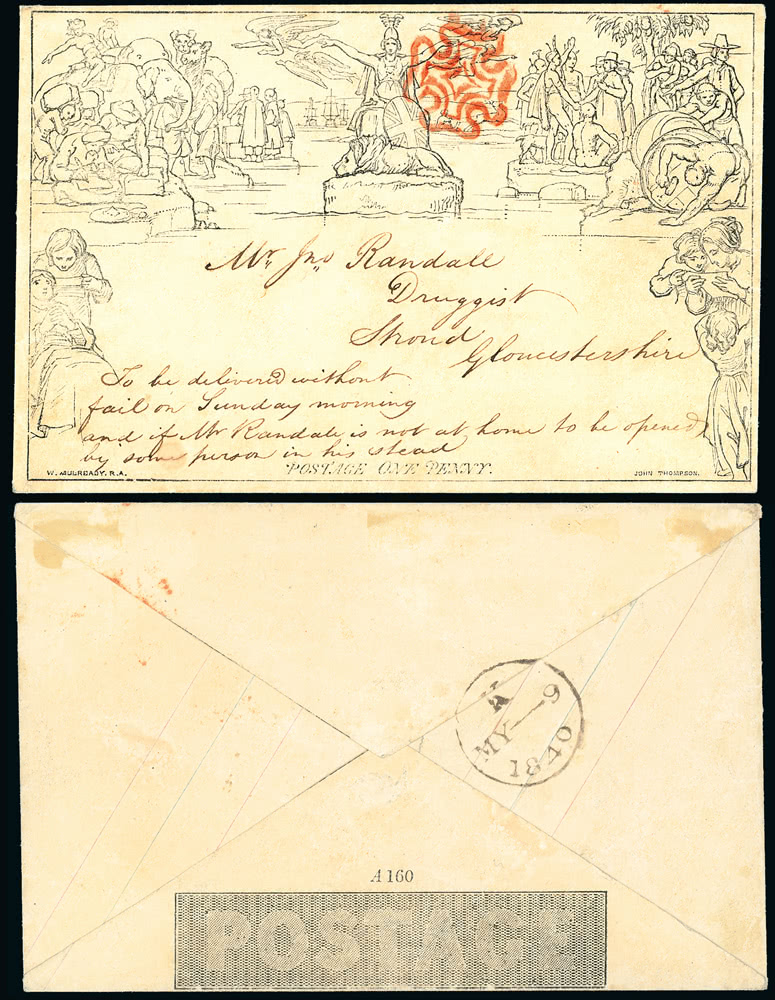 Mr. Jno Randall
Druggist
Stroud
Gloucestershire
To be delivered without
fail on Sunday morning
and if Mr Randall is not at home to be opened
by some person in his stead
POSTAGE ONE PENNY.
W. MULREADY. R.A.
JOHN THOMPSON.
A
MY 9
1840
A 160
POSTAGE